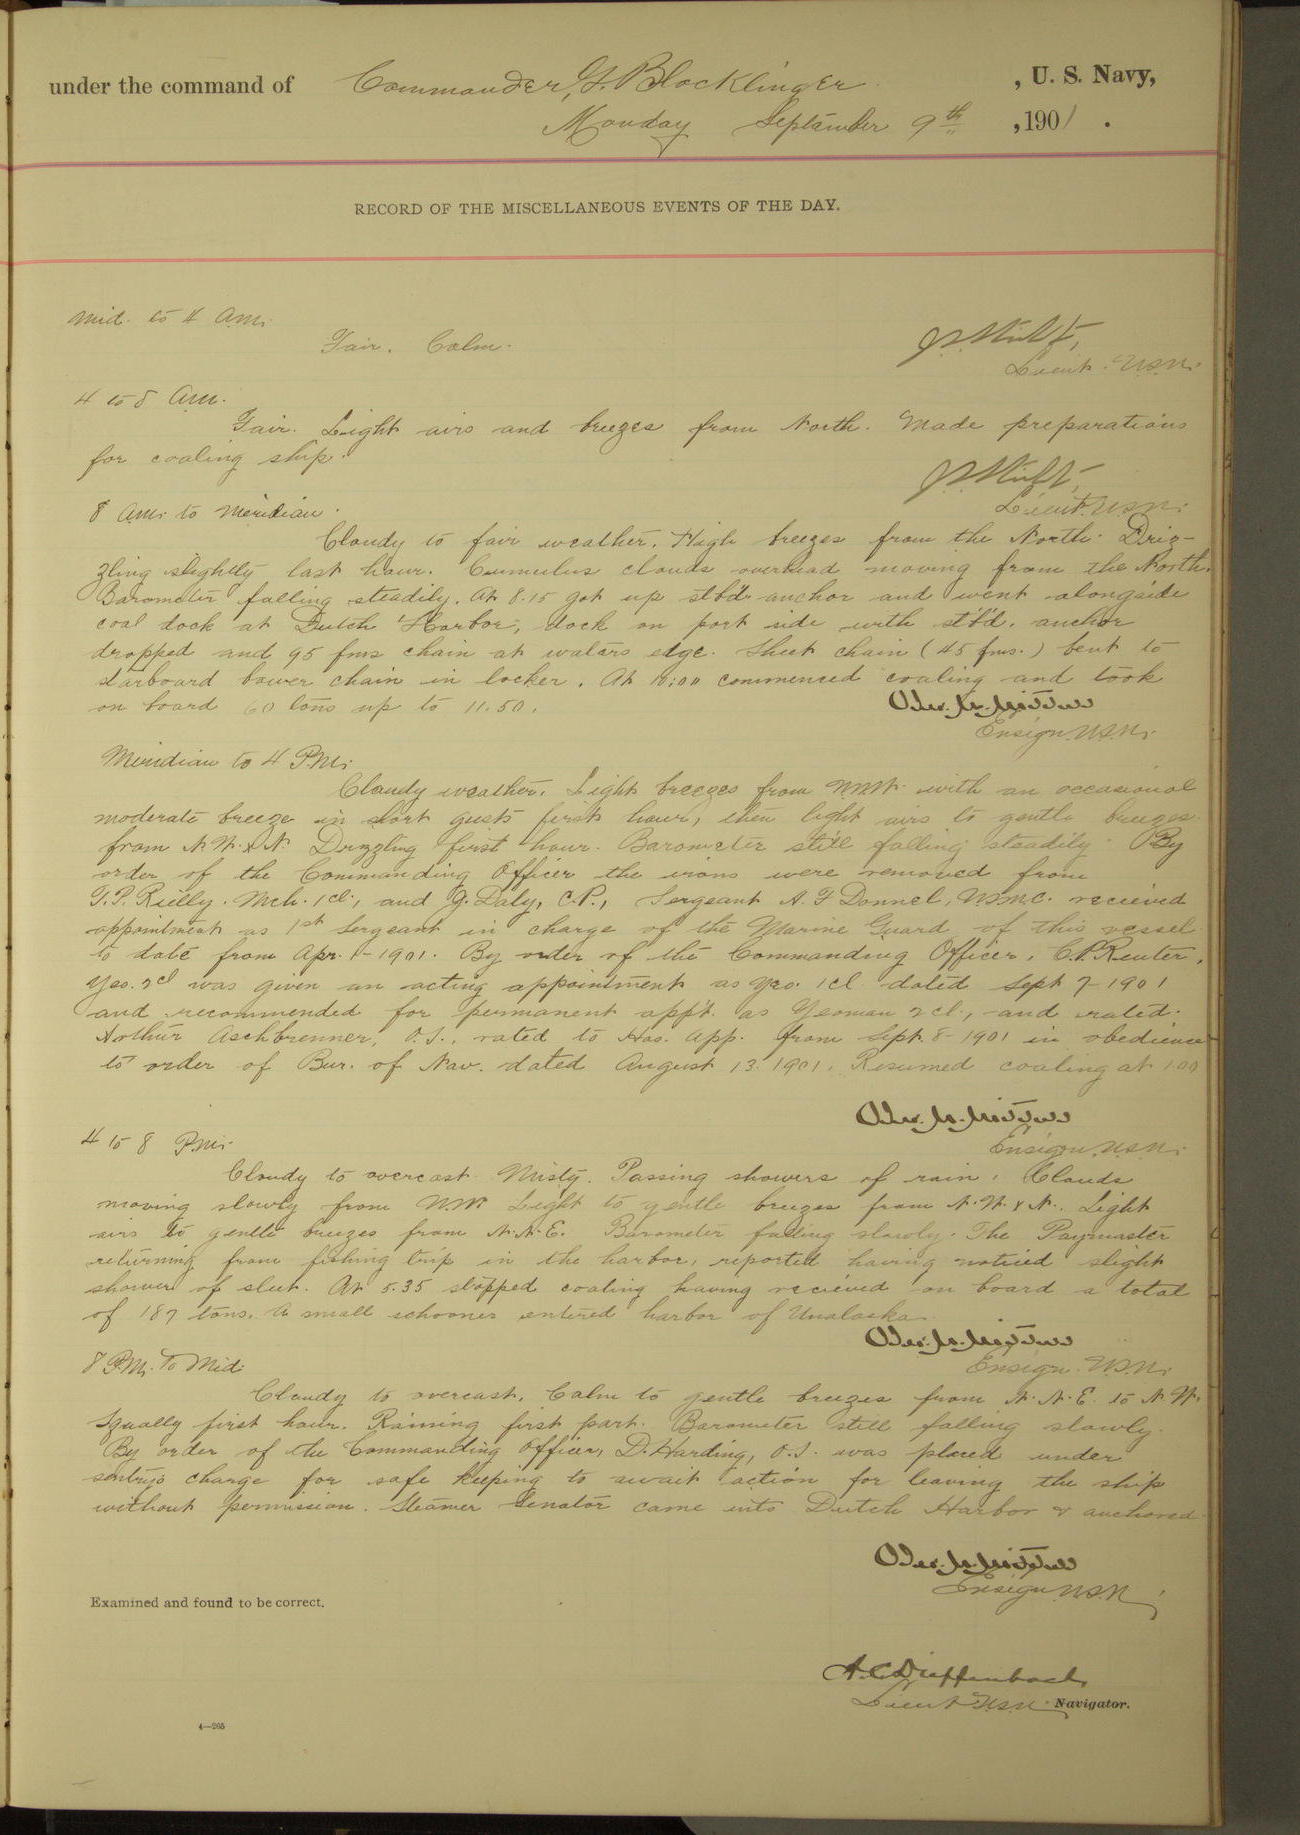 under the command of Commander, G. Blocklinger, U. S. Navy,
Monday September 9th, 1901.
RECORD OF THE MISCELLANEOUS EVENTS OF THE DAY.
Mid. to 4 A.M.
Fair. Calm.
Lieut. U.S.N.
4 to 8 A.M.
Fair. Light airs and breezes from North. Made preparations
for coaling ship.
Lieut. U.S.N.
8 A.M. to Meridian.
Cloudy to fair weather. High breezes from the North. Driz-
zling slightly last hour. Cumulus clouds overhead moving from the North.
Barometer falling steadily. At 8.15 got up stb'd anchor and went alongside
coal dock at Dutch Harbor, dock on port side with st'b'd. anchor
dropped and 95 fms chain at waters edge. Sheet chain (45 fms.) bent to
starboard bower chain in locker. At 10:00 commenced coaling and took
on board 60 tons up to 11.50.
Ensign U.S.N.
Meridian to 4 P.M.
Cloudy weather. Light breezes from NNW with an occasional
moderate breeze in short gusts first hour, then light airs to gentle breezes
from N.W. & N. Drizzling first hour. Barometer still falling steadily. By
order of the Commanding Officer the irons were removed from
T.P. Reilly. Mch. 1cl., and J. Daly, C.P., Sergeant A. F Donnel, U.S.M.C. recieved
appointment as 1st Sergeant in charge of the Marine Guard of this vessel
to date from Apr. 1-1901. By order of the Commanding Officer, C.P. Reuter,
Yeo. 2cl was given an acting appointment as Yeo. 1cl dated Sept 7-1901
and recommended for permanent app't. as Yeoman 2cl., and rated
Arthur Aschbrenner, O.S., rated to Hos. App. from Sept. 8-1901 in obedience
to order of Bur. of Nav. dated August 13. 1901. Resumed coaling at 1.00
Ensign U.S.N.
4 to 8 P.M.
Cloudy to overcast. Misty. Passing showers of rain. Clouds
moving slowly from NW. Light to gentle breezes from N.W. & N. Light
airs to gentle breezes from N.N.E. Barometer falling slowly. The Paymaster
returning from fishing trip in the harbor, reported having noticed slight
shower of sleet. At 5.35 stopped coaling having recieved on board a total
of 187 tons. A small schooner entered harbor of Unalaska.
Ensign. U.S.N.
8 P.M. to Mid.
Cloudy to overcast. Calm to gentle breezes from N.N.E. to N.W.
Squally first hour. Raining first part. Barometer still falling slowly.
By order of the Commanding Officer, D. Harding, O.S. was placed under
sentry's charge for safe keeping to await action for leaving the ship
without permission. Steamer Senator came into Dutch Harbor & anchored.
Ensign U.S.N.
Examined and found to be correct.
A.C. Dieffenbach
Lieut U.S.N. Navigator.
4—265